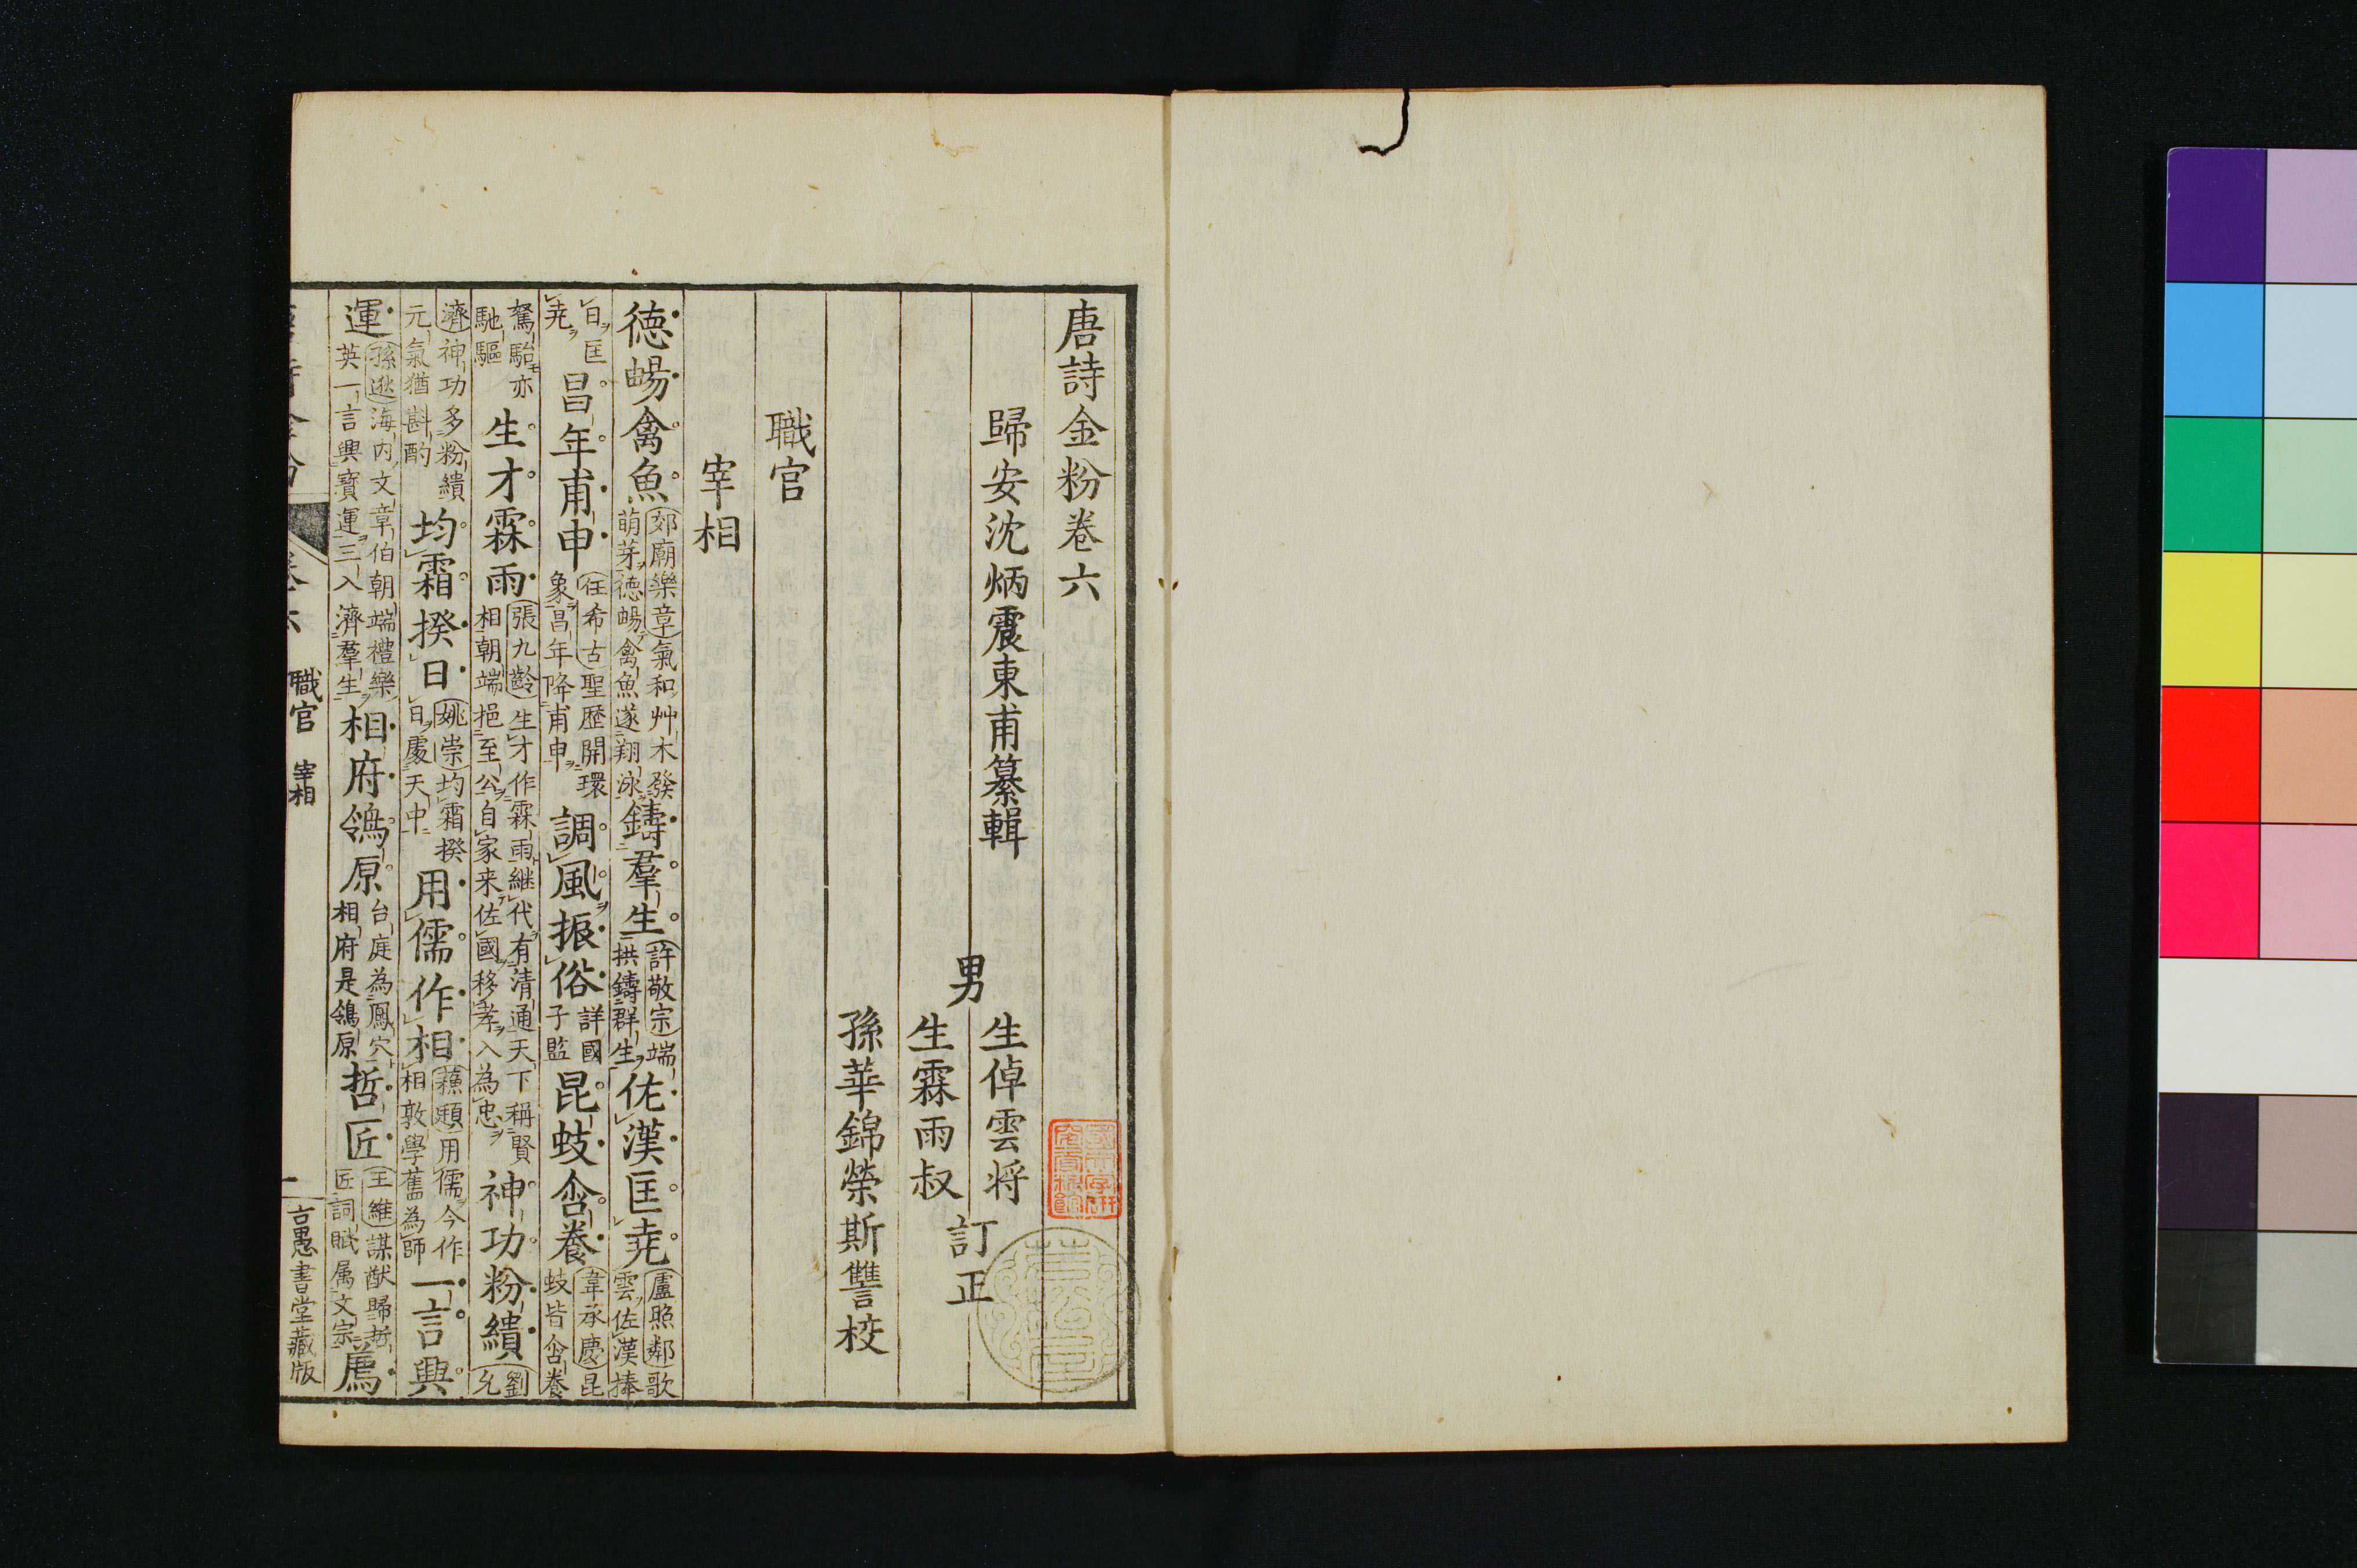 唐詩金粉卷六
歸安沈炳震東甫纂輯
男
生倬雲将
生霖雨叔
訂正
孫華錦榮斯讐校
職官
宰相
德暢禽魚
郊廟樂章氣和艸木發
萌芽德暢禽魚遂翔泳
鑄羣生
許敬宗端
拱鑄群生
佐漢匡堯
盧照鄰歌
雲佐漢捧
日匡
堯
昌年甫申
任希古聖歷開環
象昌年降甫申
調風振俗
詳國
子監
昆蚑含養
韋承慶昆
蚑皆含養
駑駘亦
馳驅
生才霖雨
張九齡生才作霖雨継代有清通天下稱賢
相朝端挹至公自家来佐國移孝入為忠
神功粉繢
劉允
濟神功多粉繢
元氣猶斟酌
均霜揆日
姚崇均霜揆
日處天中
用儒作相
蘇頲用儒今作
相敦學舊為師
一言興
運
孫逖海内文章伯朝端禮樂
英一言興寳運三入濟羣生
相府鴒原
台庭為鳳穴
相府是鴒原
哲匠
王維謀猷歸哲
匠詞賦属文宗
薦
卷六
職官
宰相
一
古愚書堂藏版